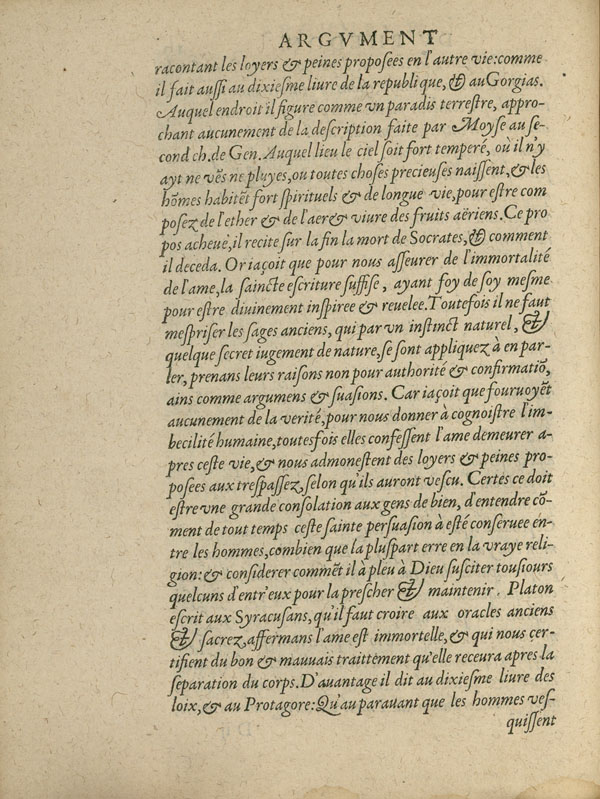 ARGVMENT
racontant les loyers & peines proposees en l'autre vie:comme
il fait aussi au dixiesme liure de la republique, & au Gorgias.
Auquel endroit il figure comme vn paradis terrestre, appro-
chant aucunement de la description faite par Moyse au se-
cond ch. de Gen. Auquel lieu le ciel soit fort temperé, où il n'y
ayt ne vẽs ne pluyes, ou toutes choses precieuses naissent, & les
hõmes habitẽt fort spirituels & de longue vie, pour estre com
posez de l'ether & de l'aer & viure des fruits aëriens. Ce pro
pos acheué, il recite sur la fin la mort de Socrates, & comment
il deceda. Or iaçoit que pour nous asseurer de l'immortalité
de l'ame, la saincte escriture suffise, ayant foy de soy mesme
pour estre diuinement inspiree & reuelee. Toutefois il ne faut
mespriser les sages anciens, qui par vn instinct naturel, &
quelque secret iugement de nature, se sont appliquez à en par-
ler, prenans leurs raisons non pour authorité & confirmatiõ,
ains comme argumens & suasions. Car iaçoit que fouruoyẽt
aucunement de la verité, pour nous donner à cognoistre l'im-
becilité humaine, toutesfois elles confessent l'ame demeurer a-
pres ceste vie, & nous admonestent des loyers & peines pro-
posees aux trespassez, selon qu'ils auront vescu. Certes ce doit
estre vne grande consolation aux gens de bien, d'entendre cõ-
ment de tout temps ceste sainte persuasion à esté conseruee en-
tre les hommes, combien que la pluspart erre en la vraye reli-
gion: & considerer commẽt il à pleu à Dieu susciter tousiours
quelcuns d'entr'eux pour la prescher & maintenir. Platon
escrit aux Syracusans, qu'il faut croire aux oracles anciens
& sacrez, affermans l'ame est immortelle, & qui nous cer-
tifient du bon & mauuais traittement qu'elle receura apres la
separation du corps. D'auantage il dit au dixiesme liure des
loix, & au Protagore: Qu'au parauant que les hommes ves-
quissent